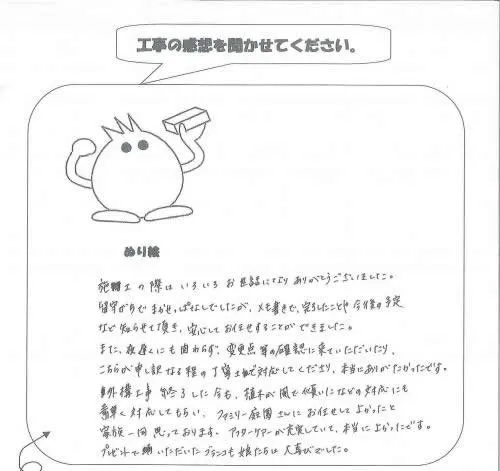 工事の感想を聞かせてください。
ぬり絵
施工の際はいろいろお世話になりありがとうございました。
留守がちでまかせっぱなしでしたが、メモ書きで、完了したことや今後の予定
など知らせて頂き、安心してお任せすることができました。
また、夜遅くにも関わらず、変更点等の確認に来ていただいたり、
こちらが申し訳なる程の丁寧さで対応してくださり、本当にありがたかったです。
外構工事終了した今も、植木が風で傾いたなどの対応にも
素早く対応してもらい、ファミリー庭園さんにお任せしてよかったと
家族一同思っております。アフターケアーが充実していて、本当によかったです。
プレゼントで頂いただいたブランコも娘たちは大喜びでした。